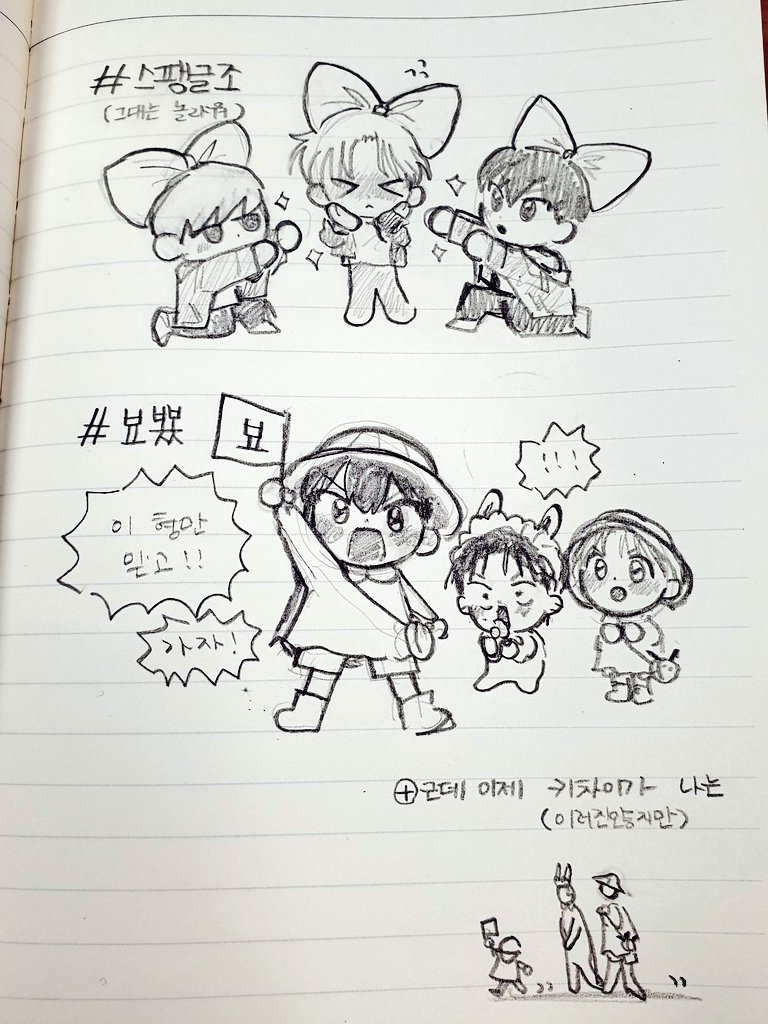 #스팽글조
(그대는 놀라워)
#뵤뵸
뵤
이 형만
믿고!!
가자!
!!!
⊕근데 이제 키차이가 나는
(이러진않겠지만)